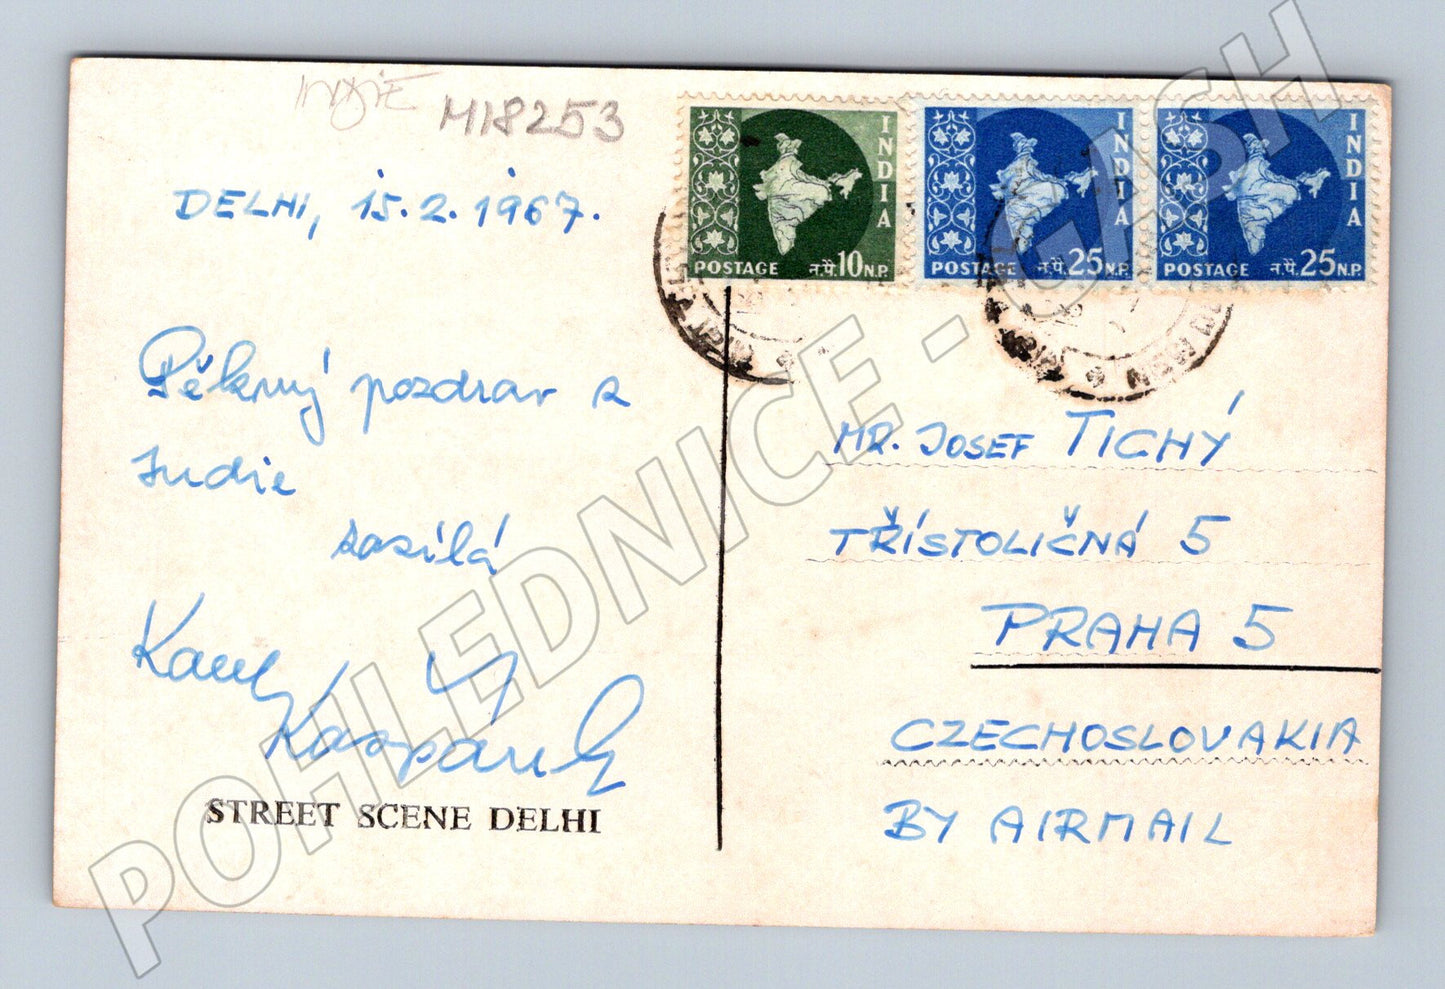 INDIE
M18253
DELHI, 15.2.1967.
Pěkný pozdrav z
Indie
zasílá
Kašpárek
STREET SCENE DELHI
INDIA
POSTAGE न.पै.10 N.P.
INDIA
POSTAGE न.पै.25 N.P.
INDIA
POSTAGE न.पै.25 N.P.
MR. JOSEF TICHÝ
TŘÍSTOLIČNÁ 5
PRAHA 5
CZECHOSLOVAKIA
BY AIRMAIL
POHLEDNICE - CASH